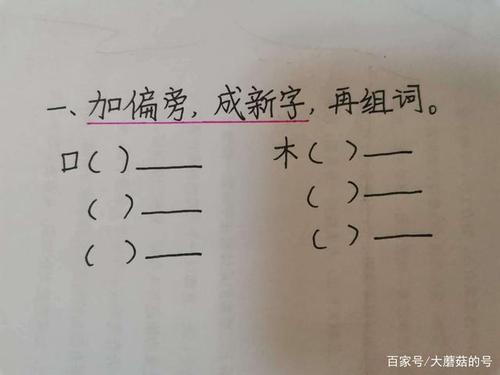 一、加偏旁，成新字，再组词。
口（ ）____ 木（ ）____
（ ）____ （ ）____
（ ）____ （ ）____
百家号/大蘑菇的号